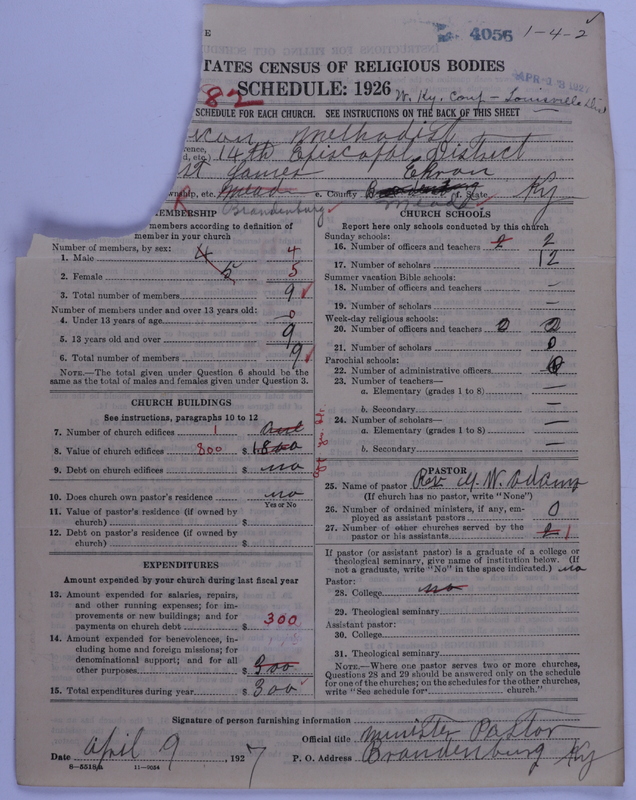 E
4056 1-4-2
TATES CENSUS OF RELIGIOUS BODIES
APR 13 1927
SCHEDULE: 1926
82
W. Ky. Conf - Louisville Dist
SCHEDULE FOR EACH CHURCH. SEE INSTRUCTIONS ON THE BACK OF THIS SHEET
ican Methodist
rence,
d, etc.) 14th Episcopal District
st James Ekron
wnship, etc. Mead e. County Brandenburg f. State Ky
R Brandenburg Mead
MEMBERSHIP
members according to definition of
member in your church
Number of members, by sex:
1. Male 4 4
2. Female 5 5
3. Total number of members 9
Number of members under and over 13 years old:
4. Under 13 years of age 0
5. 13 years old and over 9
6. Total number of members 9
NOTE.—The total given under Question 6 should be the
same as the total of males and females given under Question 3.
CHURCH BUILDINGS
See instructions, paragraphs 10 to 12
7. Number of church edifices 1
8. Value of church edifices 800 $ 1800
9. Debt on church edifices $ no
10. Does church own pastor's residence no
Yes or No
11. Value of pastor's residence (if owned by
church) $
12. Debt on pastor's residence (if owned by
church) $
EXPENDITURES
Amount expended by your church during last fiscal year
13. Amount expended for salaries, repairs,
and other running expenses; for im-
provements or new buildings; and for
payments on church debt $ 300
14. Amount expended for benevolences, in-
cluding home and foreign missions; for
denominational support; and for all
other purposes $ 300
15. Total expenditures during year $ 300
CHURCH SCHOOLS
Report here only schools conducted by this church
Sunday schools:
16. Number of officers and teachers 2 2
17. Number of scholars 12
Summer vacation Bible schools:
18. Number of officers and teachers —
19. Number of scholars —
Week-day religious schools:
20. Number of officers and teachers 0 0
21. Number of scholars 0
Parochial schools:
22. Number of administrative officers 0
23. Number of teachers—
a. Elementary (grades 1 to 8) —
b. Secondary —
24. Number of scholars—
a. Elementary (grades 1 to 8) —
b. Secondary —
PASTOR
25. Name of pastor Rev. W. Adams
(If church has no pastor, write "None")
26. Number of ordained ministers, if any, em-
ployed as assistant pastors 0
27. Number of other churches served by the
pastor or his assistants 2 1
If pastor (or assistant pastor) is a graduate of a college or
theological seminary, give name of institution below. (If
not a graduate, write "No" in the space indicated.) no
Pastor:
28. College no
29. Theological seminary
Assistant pastor:
30. College
31. Theological seminary
NOTE.—Where one pastor serves two or more churches,
Questions 28 and 29 should be answered only on the schedule
for one of the churches; on the schedules for the other churches,
write "See schedule for church."
Signature of person furnishing information
Official title Minister Pastor
Date April 9, 1927 P. O. Address Brandenburg Ky
8-5518a 11-9054